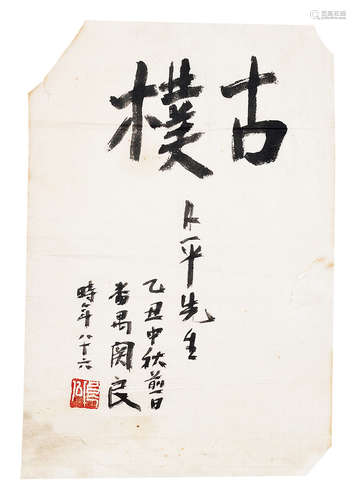 古樸
平先生
乙丑中秋前一日
番禺関良
時年八十六